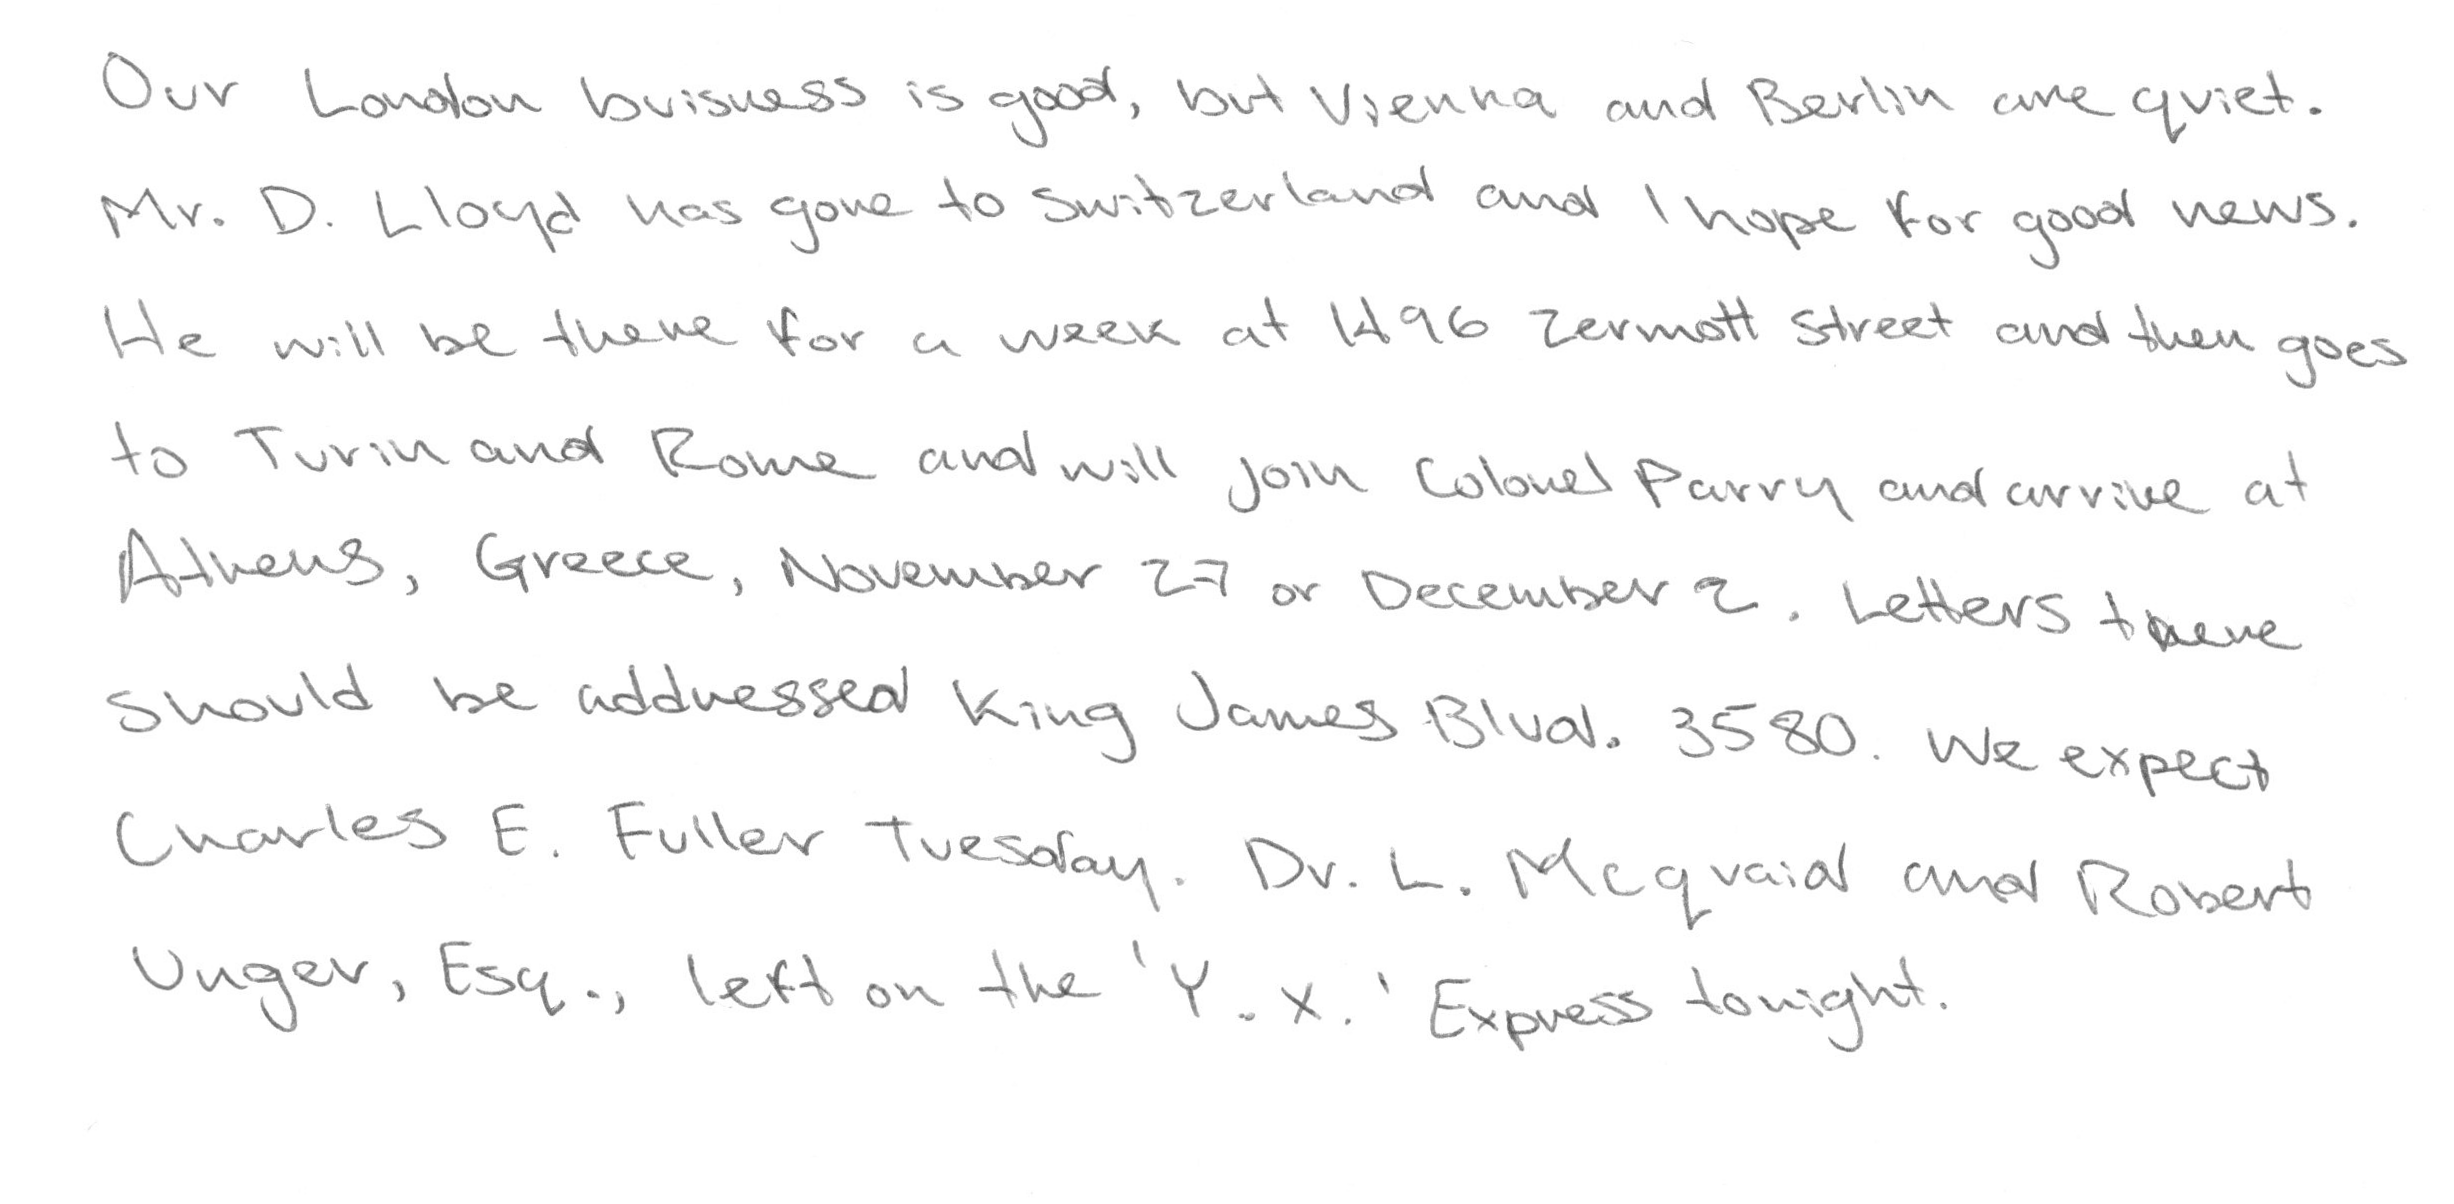 Our London buisness is good, but Vienna and Berlin are quiet.
Mr. D. Lloyd has gone to Switzerland and I hope for good news.
He will be there for a week at 1496 Zermott Street and then goes
to Turin and Rome and will join Colonel Parry and arrive at
Athens, Greece, November 27 or December 2. Letters there
should be addressed King James Blvd. 3580. We expect
Charles E. Fuller Tuesday. Dr. L. Mcquaid and Robert
Unger, Esq., left on the 'Y. X.' Express tonight.